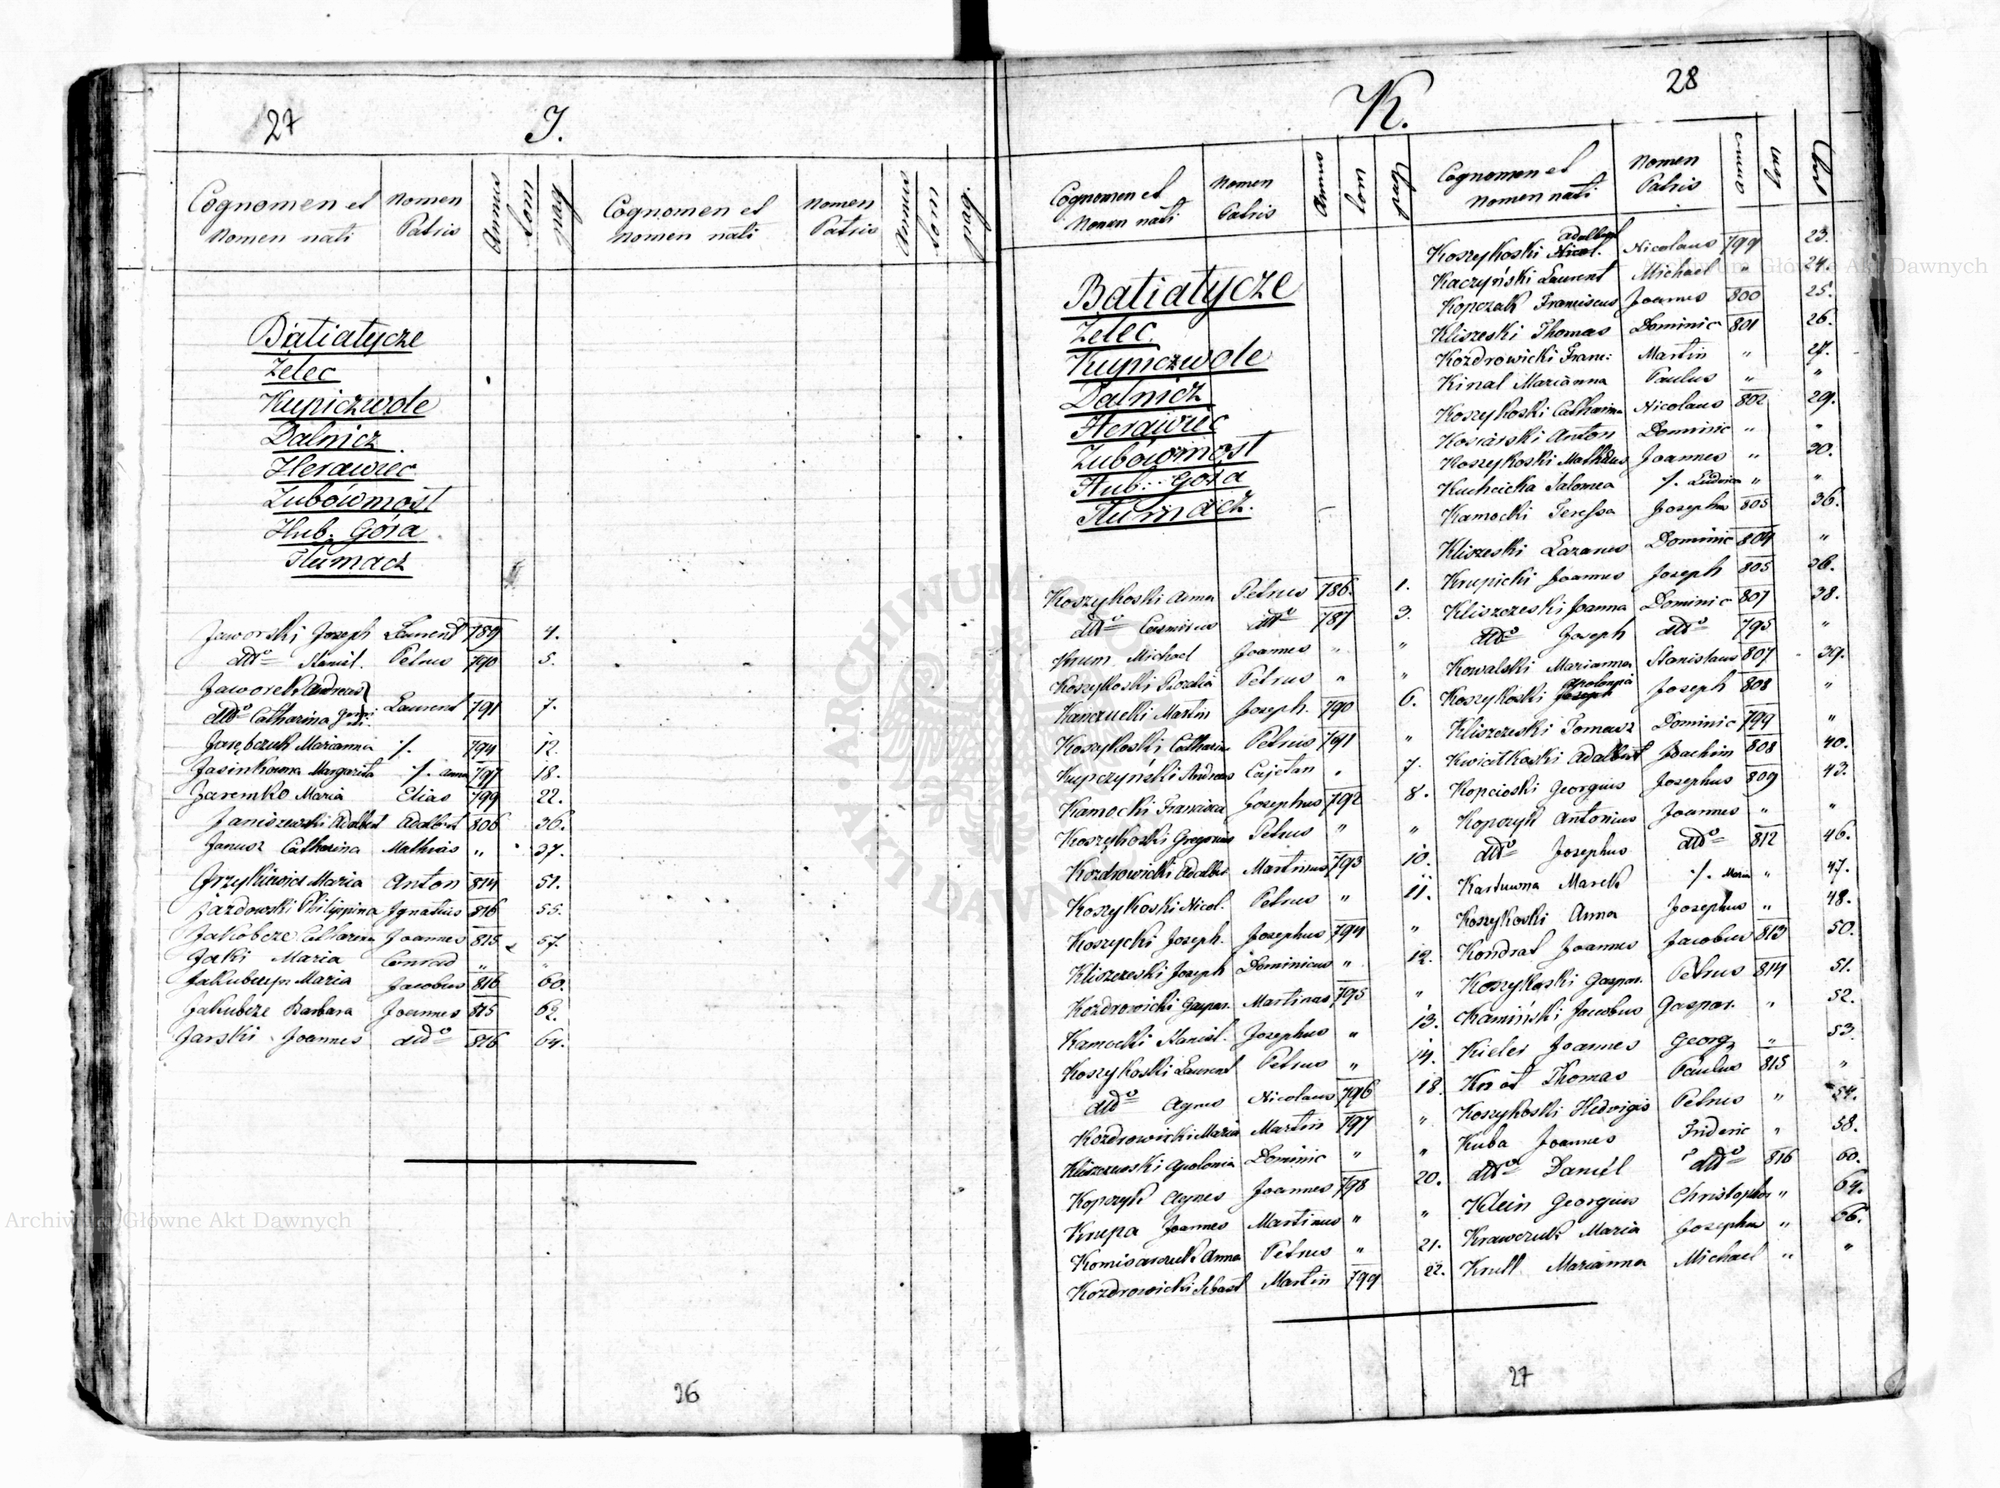 27
J.
Cognomen et Nomen nati
Nomen Patris
Annus
tom
pag
Cognomen et Nomen nati
Nomen Patris
Annus
tom
pag.
Batiatycze
Żelec
Kupiczwole
Dalnicz
Herawiec
Zubówmost
Hub. Góra
Tłumacz
Jaworski Joseph Laurent 789 4.
dtto Stanisl. Petrus 790 5.
Jaworek Andreas
dtto Catharina Laurent 791 7.
Jasębczuk Marianna ./. 794 12.
Jasinkowna Margarita ./. Anna 797 18.
Jaremko Maria Elias 799 22.
Janiszewski Adalbert Adalbert 806 36.
Janusz Catharina Mathias " 37.
Grzykiewicz Maria Anton 814 51.
Jazdowski Philippina Ignatius 816 55.
Jakobcze Catharina Joannes 815 57.
Jaki Maria Conrad " "
Jakubczyn Maria Jacobus 816 60.
Jakubcze Barbara Joannes 815 62.
Jarski Joannes dtto 816 64.
26
28
K.
Cognomen et Nomen nati
Nomen Patris
Annus
tom
pag
Batiatycze
Żelec
Kupiczwole
Dalnicz
Herawiec
Zubówmost
Hub: Góra
Tłumacz.
Koszykoski Anna Petrus 786 1.
dtto Casmirus dtto 787 3.
Krum Michael Joannes " "
Koszykoski Rozalia Petrus " "
Kanczucki Martin Joseph. 790 6.
Koszykoski Catharin Petrus 791 "
Kupczyński Andreas Cajetan " 7.
Kamocki Francisca Josephus 792 8.
Koszykoski Gregorius Petrus " "
Kozdrowicki Adalber Martinus 793 10.
Koszykoski Nicol. Petrus " 11.
Koszycki Joseph. Josephus 794 "
Kliszczeski Joseph Dominicus " 12.
Kozdrowicki Gaspar. Martinus 795 "
Kamocki Stanisl. Josephus " 13.
Koszykoski Laurent Petrus " 14.
dtto Agnes Nicolaus 796 18.
Kozdrowicki Maria Martin 797 "
Kliszczeski Apolonia Dominic " "
Kopczyk Agnes Joannes 798 20.
Krupa Joannes Martinus " "
Komisarczuk Anna Petrus " 21.
Kozdrowicki Sebast Martin 799 22.
Cognomen et Nomen nati
Nomen Patris
annus
Koszykoski Adalbert Nicolaus 799 23.
Kaczyński Laurent Michael " 24.
Kopczak Franciscus Joannes 800 25.
Kliszeski Thomas Dominic 801 26.
Kozdrowicki Franc: Martin " 27.
Kinal Marianna Paulus " "
Koszykoski Catharina Nicolaus 802 29.
Kosciński Anton Dominic " "
Koszykoski Mathaus Joannes " 30.
Kuchcicka Salomea ./. Ludvica " "
Kamocki Teressa Josephus 805 36.
Kliszeski Lazarus Dominic 804 "
Krupicki Joannes Joseph 805 36.
Kliszczeski Joanna Dominic 807 38.
dtto Joseph dtto 795 "
Kowalski Marianna Stanislaus 807 39.
Koszykoski Apolonia Joseph 808 "
Kliszczeski Tomasz Dominic 799 "
Kwiatkoski Adalbert Joachim 808 40.
Kopcioski Georgius Josephus 809 43.
Kopczyk Antonius Joannes " "
dtto Josephus dtto 812 46.
Kartuwna Marek ./. Maria " 47.
Koszykoski Anna Josephus " 48.
Kondrat Joannes Jacobus 813 50.
Koszykoski Gaspar. Petrus 814 51.
Kamiński Jacobus Gaspar. " 52.
Kieler Joannes Georg " 53.
Thomas Paulus 815 "
Koszykoski Hedvigis Petrus " 54.
Kuba Joannes Frideric " 58.
dtto Daniel dtto 816 60.
Klein Georgius Christophor " 64.
Krawczuk Maria Josephus " 66.
Krull Marianna Michael " "
27
Archiwum Główne Akt Dawnych
Archiwum Główne Akt Dawnych